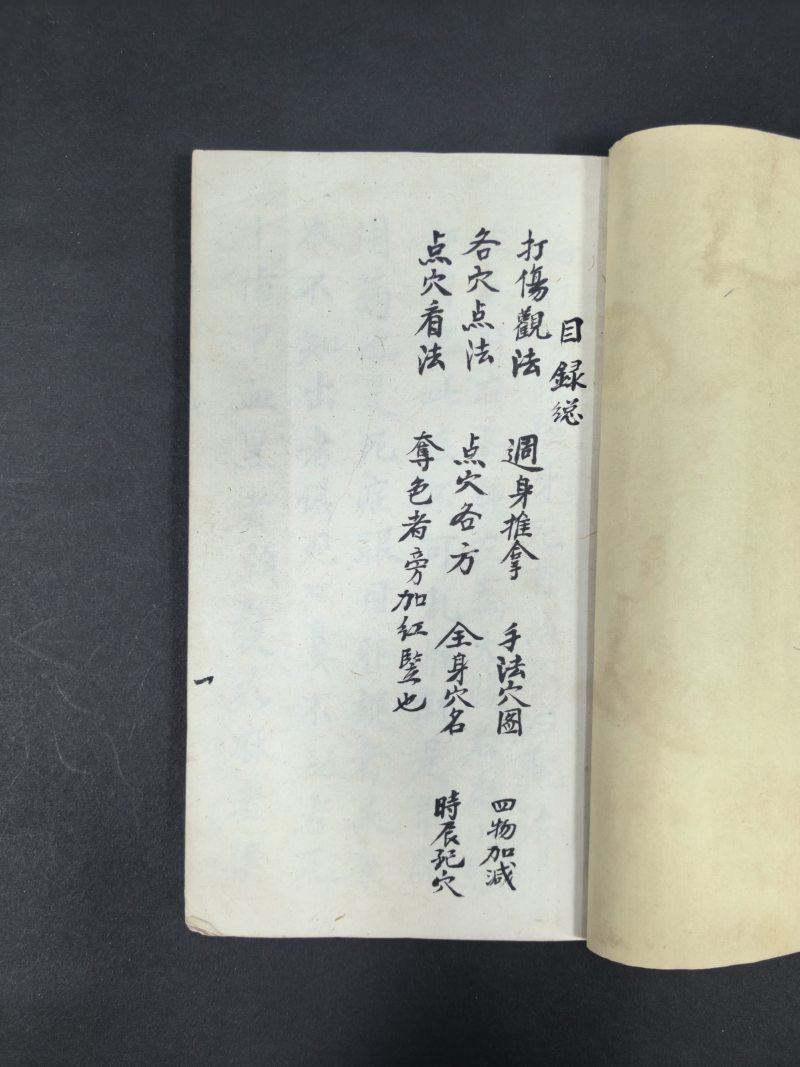 目録総
打傷觀法　週身推拿　手法穴圖　四物加減
各穴点法　点穴各方　全身穴名　時辰記穴
点穴看法　奪色者旁加紅竪也
一